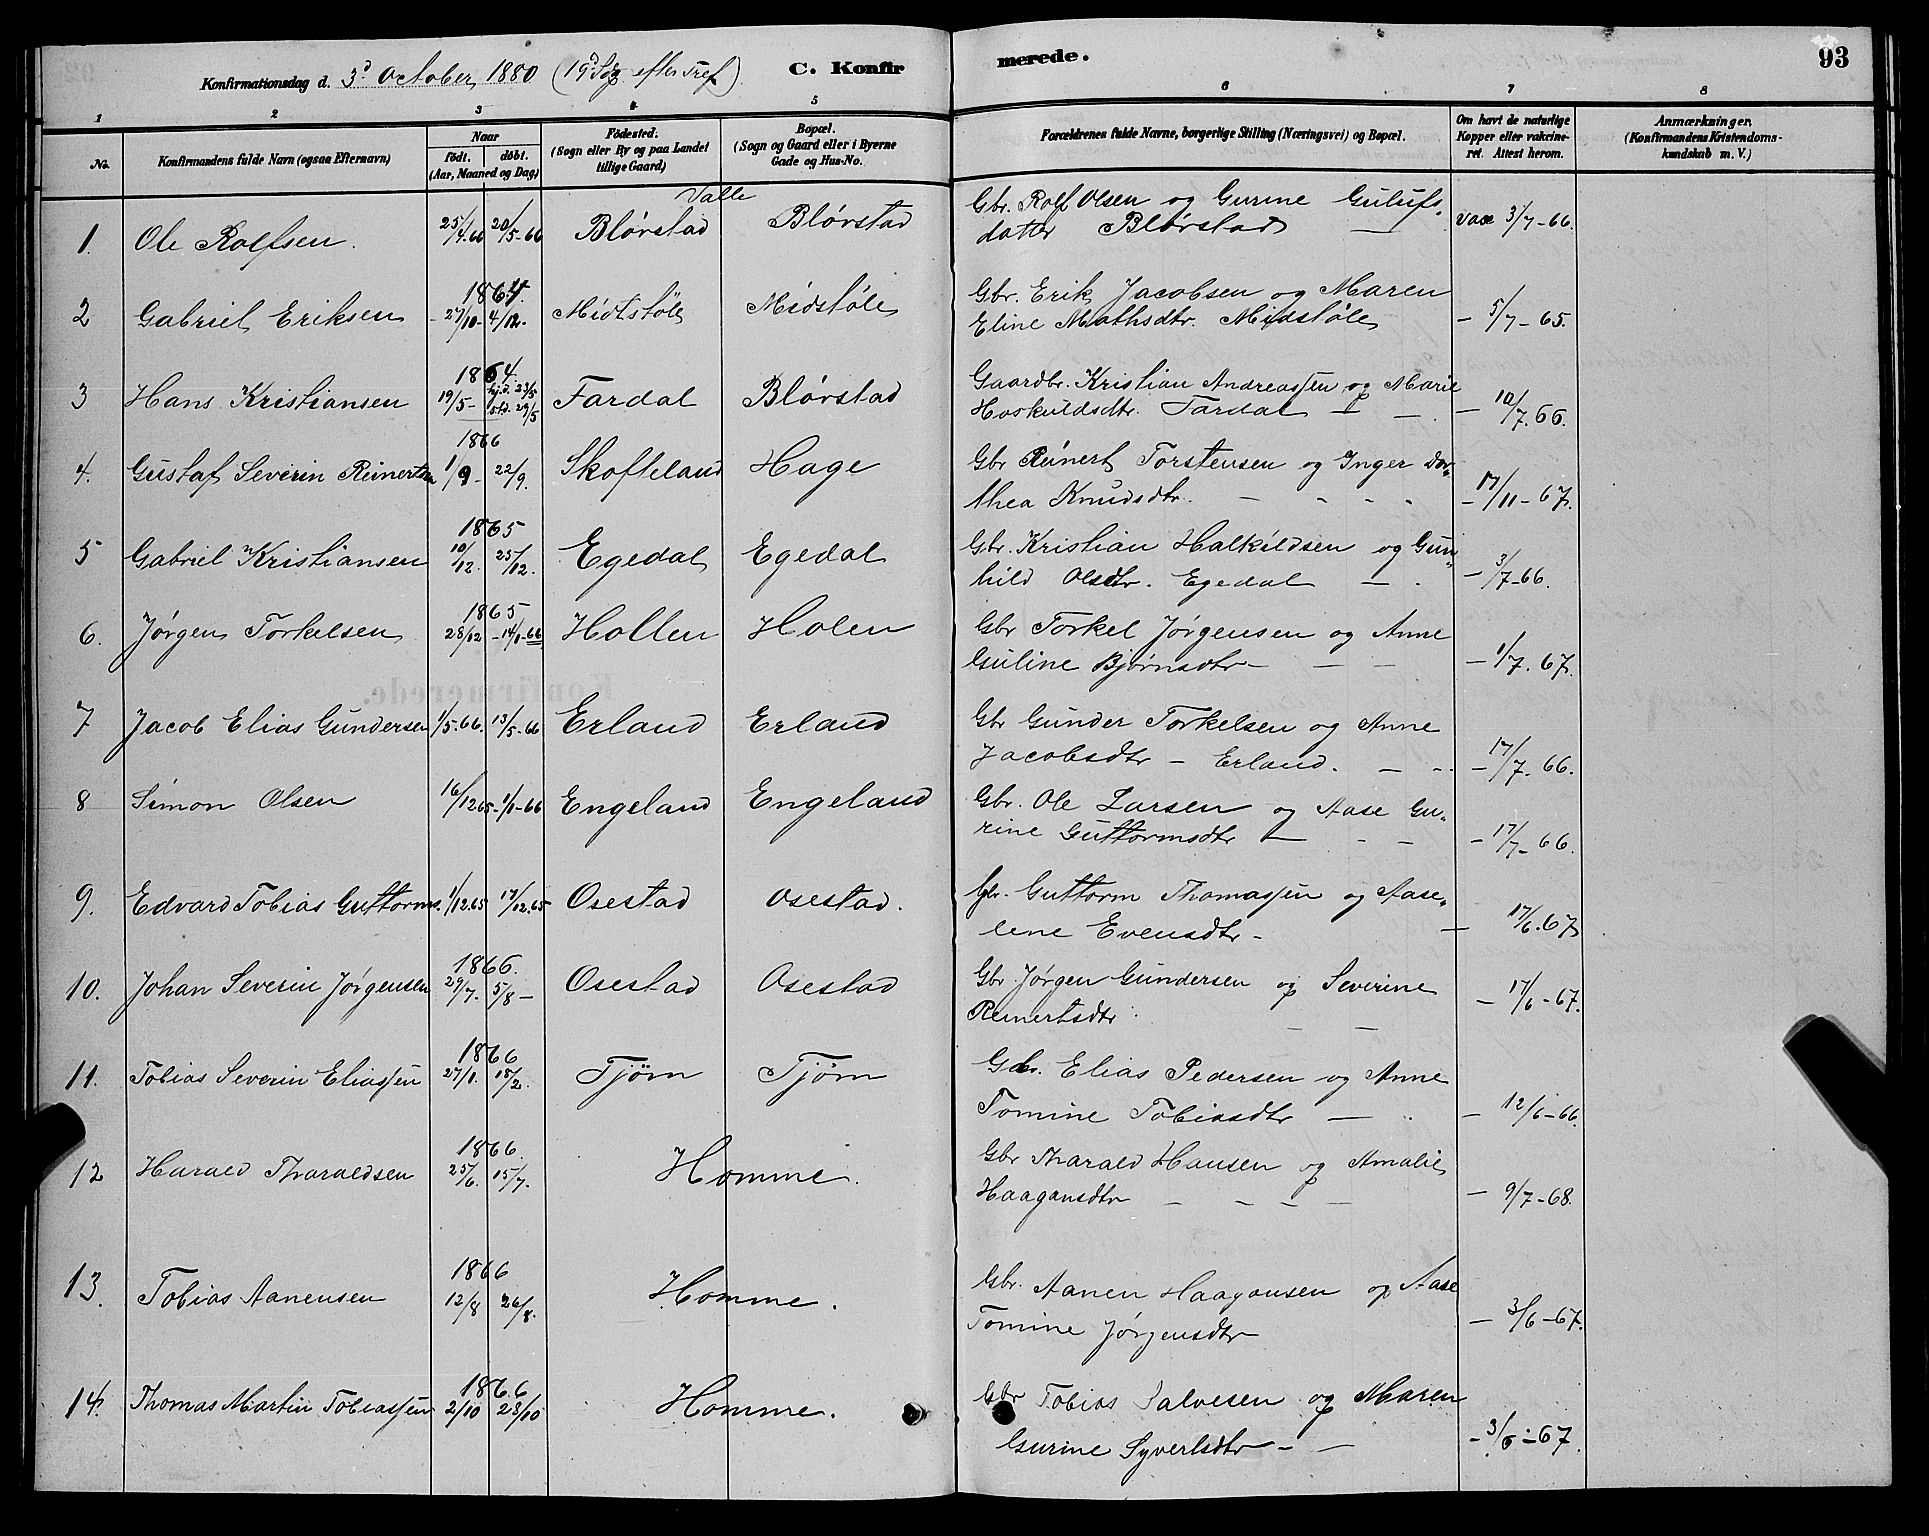 93
Konfirmationsdag d. 3d October 1880 (19d Sdg. efter Tref.) C. Konfir merede.
1 2 3 4 5 6 7 8
No. Konfirmandens fulde Navn (ogsaa Efternavn) Naar født. døbt. (Aar, Maaned og Dag) Fødested. (Sogn eller By og paa Landet tillige Gaard) Bopæl. (Sogn og Gaard eller i Byerne Gade og Hus-No. Forældrenes fulde Navne, borgerlige Stilling (Næringsvei) og Bopæl. Om havt de naturlige Kopper eller vakcineret. Attest herom. Anmærkninger. (Konfirmandens Kristendomskundskab m. V.)
Valle
1. Ole Rolfsen. 25/4.66 20/5-66 Blørstad Blørstad Gbr. Rolf Olsen og Gurine Gulufs- vac 3/7-66.
datter Blørstad —
1864.
2 Gabriel Eriksen 27/10- 4/12. Midtstøle Midstøle Gbr. Erik Jacobsen og Maren — 5/7-65.
Eline Mathsdtr. Midstøle
1864.
3 Hans Kristiansen 19/5- hj.d. 23/5 st.d. 29/5 Fardal Blørstad Gaardbr. Kristian Andreassen og Marie — 10/7.66.
Hoskuldsdtr. Fardal — —
1866
4. Gustaf Severin Reinertsen 1/9- 22/9. Skofteland Hage Gbr Reinert Torstensen og Inger Dor- — 17/11-67.
thea Knudsdtr. — - - -
1865
5 Gabriel Kristiansen 10/12. 25/12. Egedal Egedal Gbr. Kristian Halkildsen og Gun- — 3/7-66.
hild Olsdtr. Egedal —
1865
6. Jørgen Torkelsen 28/12 -14/1-66 Hollen Holen Gbr Torkel Jørgensen og Anne — 1/7.67.
Guline Bjørnsdtr — — —
7 Jacob Elias Gundersen 1/5.66. 13/5-66 Erland Erland Gbr Gunder Torkelsen og Anne — 17/7.66.
Jacobsdtr — Erland. — -
8 Simon Olsen 16/12 65- 1/1-66 Engeland Engeland Gbr. Ole Larsen og Aase Gu- — 17/7-66.
rine Guttormsdtr — - -
9. Edvard Tobias Guttorms. 1/12.65 17/12.65 Osestad Osestad. Gbr. Guttorm Thomassen og Aase- — 17/6.67
lene Evensdtr-
1866.
10. Johan Severin Jørgensen 29/7. 5/8- Osestad Osestad Gbr Jørgen Gundersen og Severine — 17/6-67.
Reinertsdtr — —
1866
11. Tobias Severin Eliassen 27/1. 18/2. Tjøm Tjøm Gbr. Elias Pedersen og Anne — 12/6-66.
Tomine Tobiasdtr —
1866.
12 Harald Tharaldsen 25/6. 15/7. Homme. Gbr Tharald Hansen og Amalie — 9/7-68.
Haagansdtr - - - -
1866
13. Tobias Aanensen 12/8 26/8. Homme. Gbr. Aanen Haagansen og Aase — 3/6-67.
Tomine Jørgensdtr
1866
14. Thomas Martin Tobiassen 2/10 28/10 Homme. Gbr Tobias Salvesen og Maren - 3/6-67.
Gurine Syvertsdtr - -